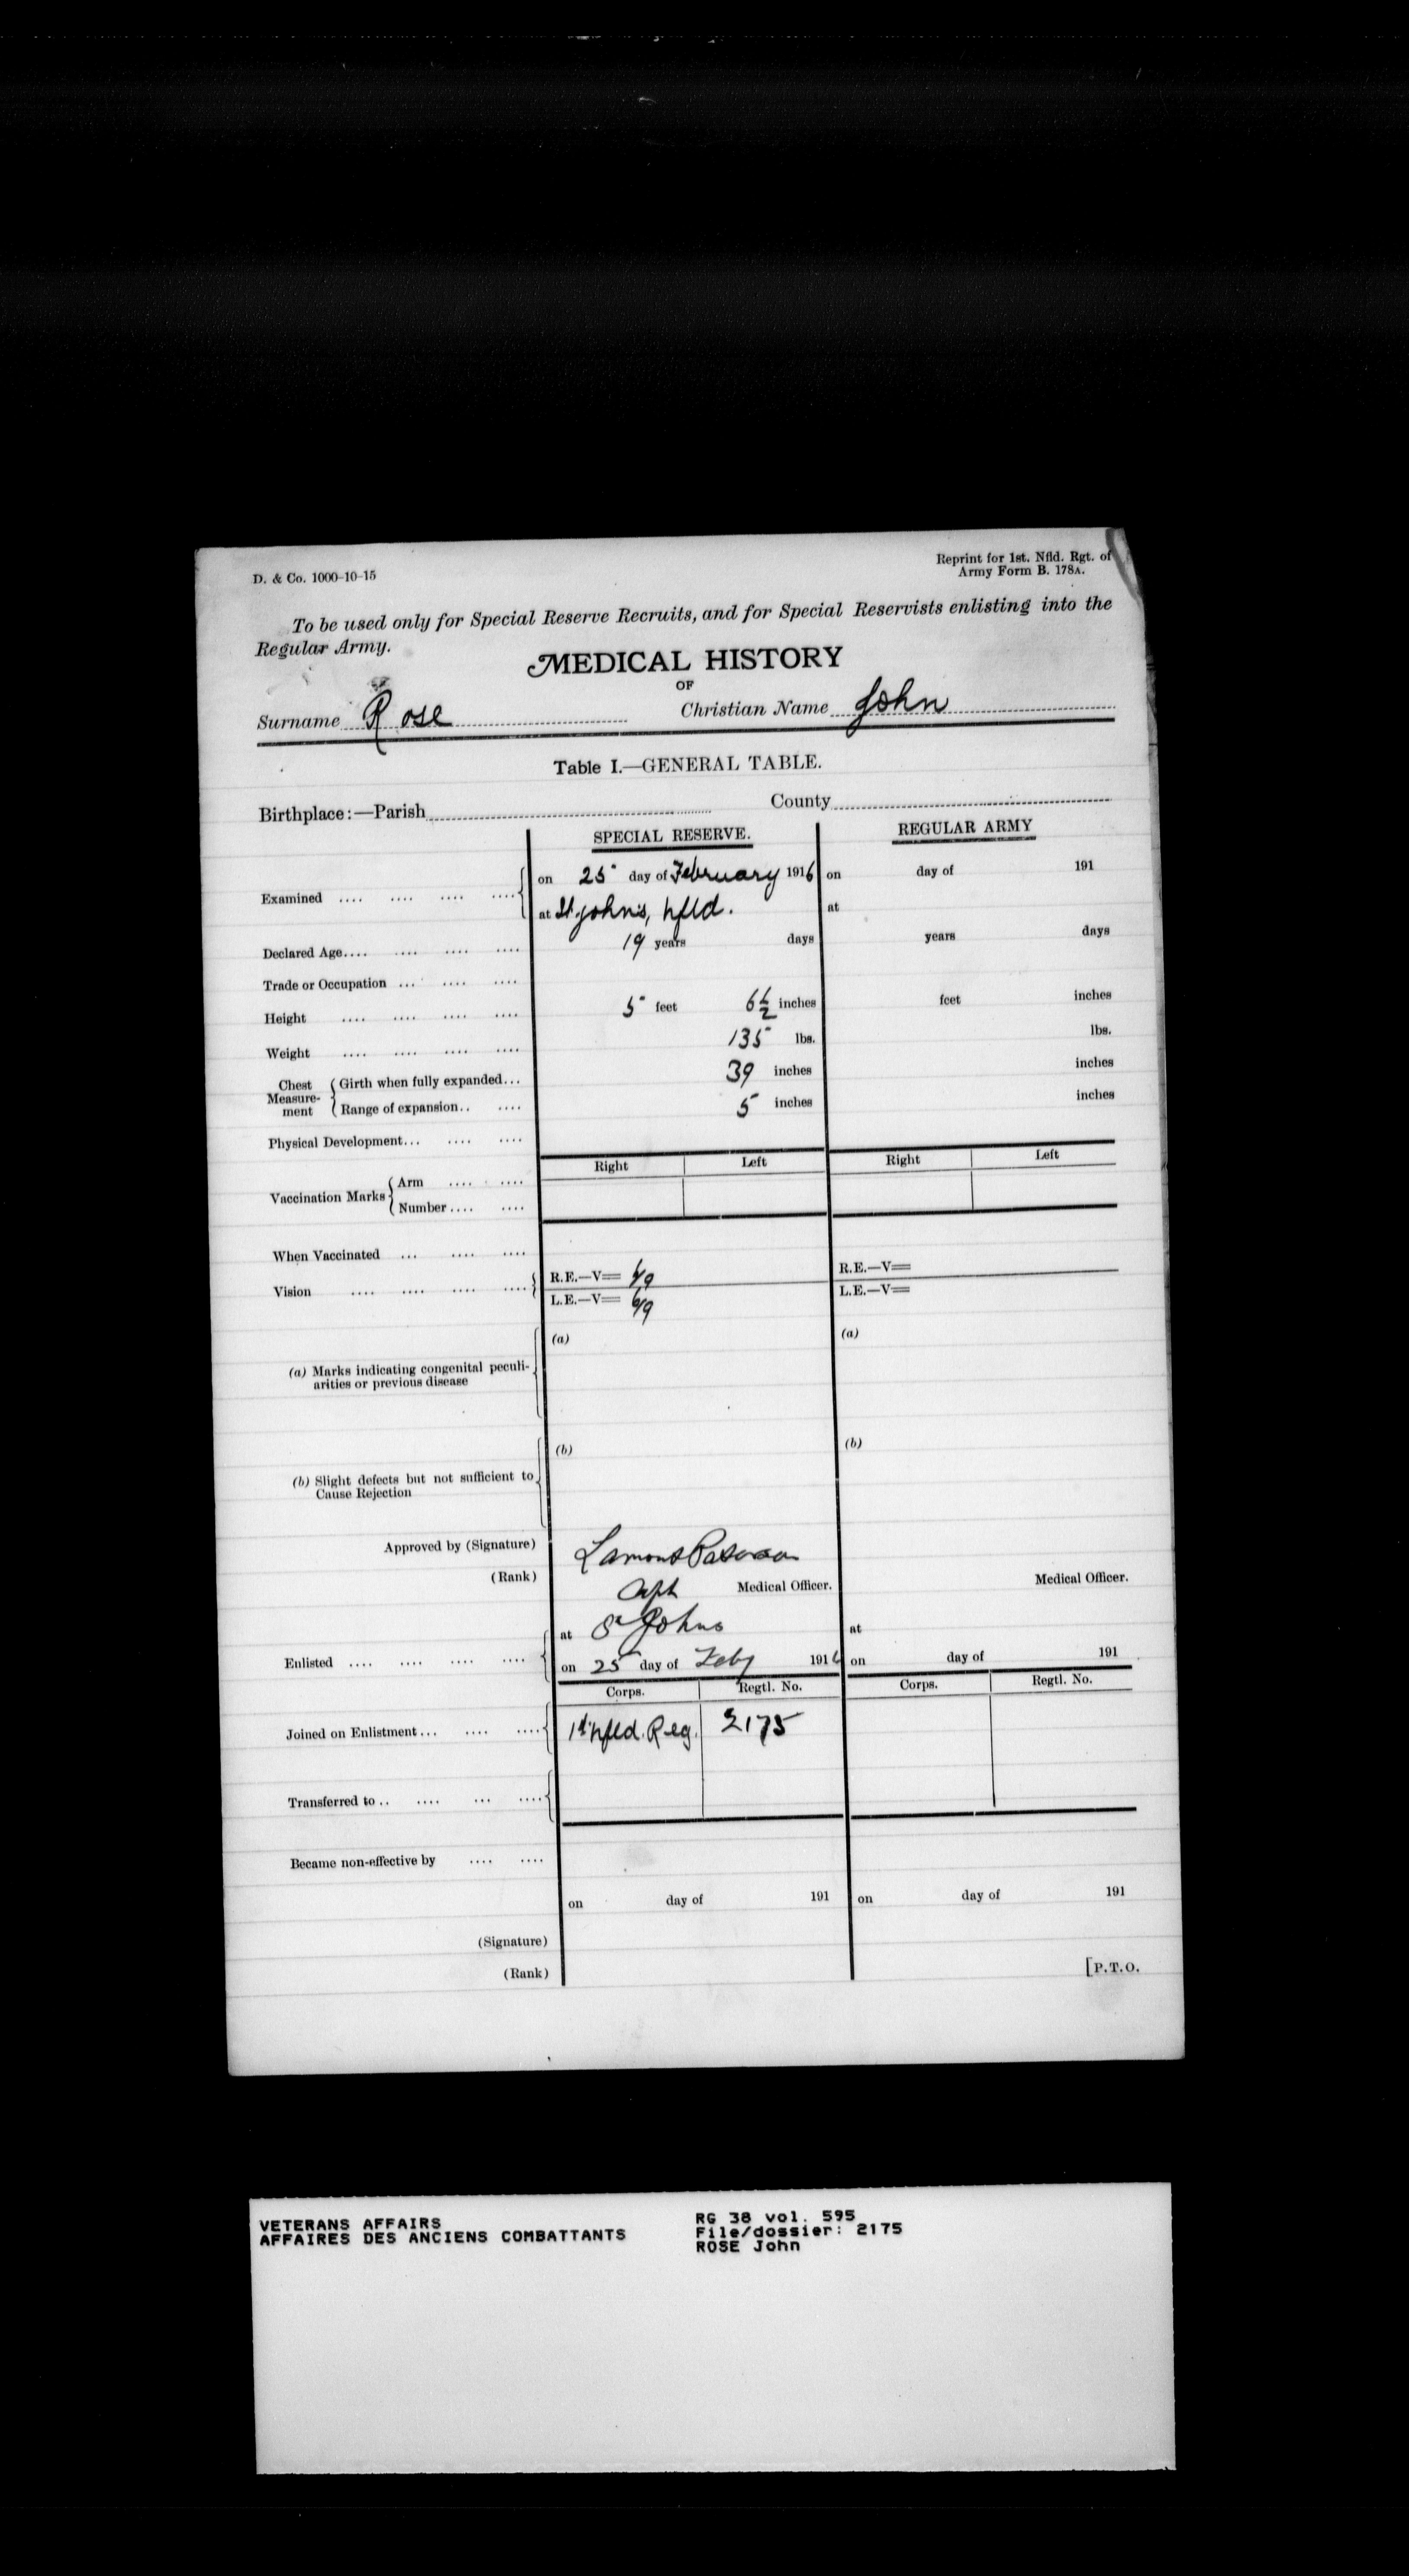 D. & Co. 1000-10-15
Reprint for 1st. Nfld. Rgt. of
Army Form B. 178A.
To be used only for Special Reserve Recruits, and for Special Reservists enlisting into the
Regular Army.
MEDICAL HISTORY
OF
Surname Rose Christian Name John
Table I.—GENERAL TABLE.
Birthplace:—Parish County
SPECIAL RESERVE. REGULAR ARMY
Examined .... .... .... .... on 25 day of February 1916 on day of 191
at St. John's, Nfld. at
Declared Age.... .... .... .... 19 years days years days
Trade or Occupation ... .... ....
Height .... .... .... .... 5 feet 6½ inches feet inches
Weight .... .... .... .... 135 lbs. lbs.
Chest Measurement Girth when fully expanded... 39 inches inches
Range of expansion.. .... 5 inches inches
Physical Development... .... ....
Right Left Right Left
Vaccination Marks Arm .... ....
Number.... ....
When Vaccinated ... .... ....
Vision .... .... .... .... R.E.—V= 6/9 R.E.—V=
L.E.—V= 6/9 L.E.—V=
(a) (a)
(a) Marks indicating congenital peculi-
arities or previous disease
(b) (b)
(b) Slight defects but not sufficient to
Cause Rejection
Approved by (Signature) Lamont Paterson
(Rank) Capt Medical Officer. Medical Officer.
at St Johns at
Enlisted .... .... .... .... on 25 day of Feby 1916 on day of 191
Corps. Regtl. No. Corps. Regtl. No.
Joined on Enlistment... .... .... 1st Nfld. Reg. 2175
Transferred to .. .... ... ....
Became non-effective by .... ....
on day of 191 on day of 191
(Signature)
(Rank)
[P.T.O.
VETERANS AFFAIRS
AFFAIRES DES ANCIENS COMBATTANTS
RG 38 vol. 595
File/dossier: 2175
ROSE John